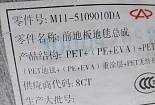 零件号: M11-5109010DA
零件名称: 前地板地毯总成
产品结构: PET+ (PE+EVA) +PET+
+PET毛毡+ (PE+EVA) +重涂层+PET
供应商代码: 8CT
生产批号: